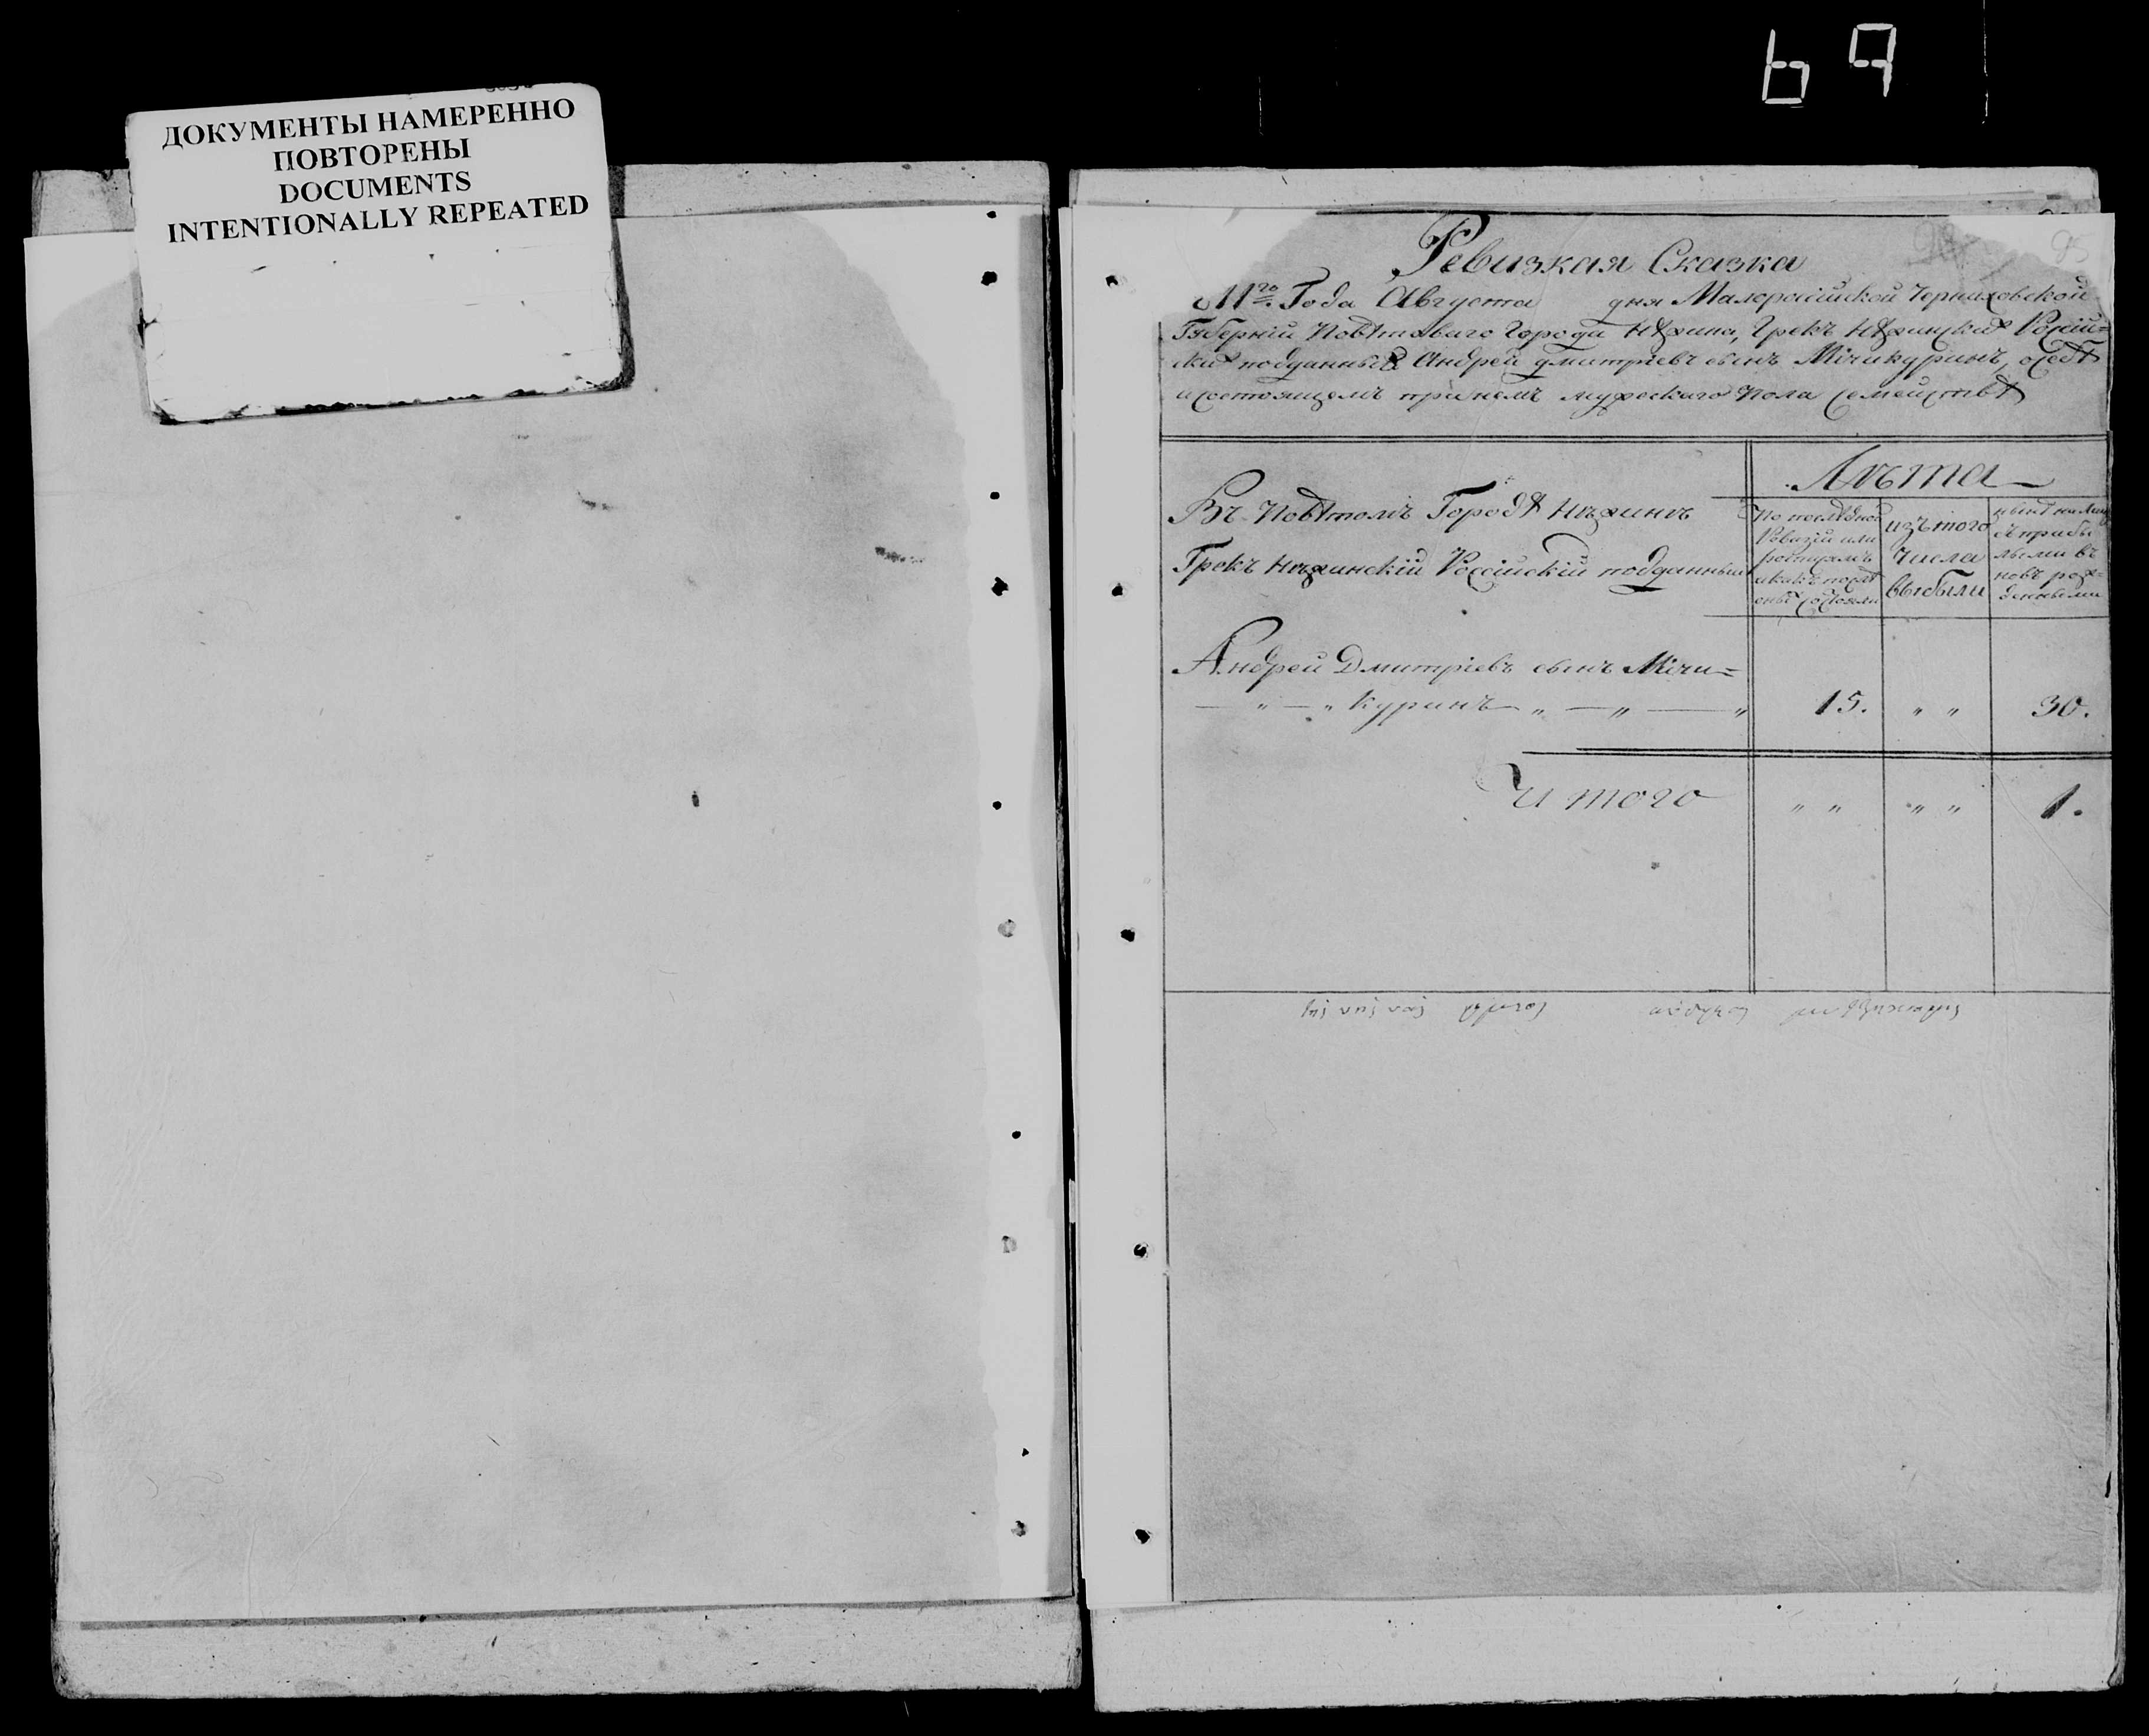 ДОКУМЕНТЫ НАМЕРЕННО
ПОВТОРЕНЫ
DOCUMENTS
INTENTIONALLY REPEATED
85
Ревизкая Сказка
11го Года Августа дня Малороссійской Черниговской
Губерніи Повѣтоваго Города Нѣжина, Грекъ
подданный Андрей Дмитріевъ сынъ Мѣчикуринъ, о себѣ
и состоящемъ при немъ мужескаго пола семействѣ
Лѣта
Въ Повѣтомъ Городѣ Нѣжинѣ
Грекъ Нѣжинскій Россійскій подданный
По последней
Ревизіи или
состояли
изъ того
числа
выбыли
въ
новъ рож=
денными
Андрей Дмитріевъ сынъ Мѣчи=
куринъ 15. 30.
Итого 1.